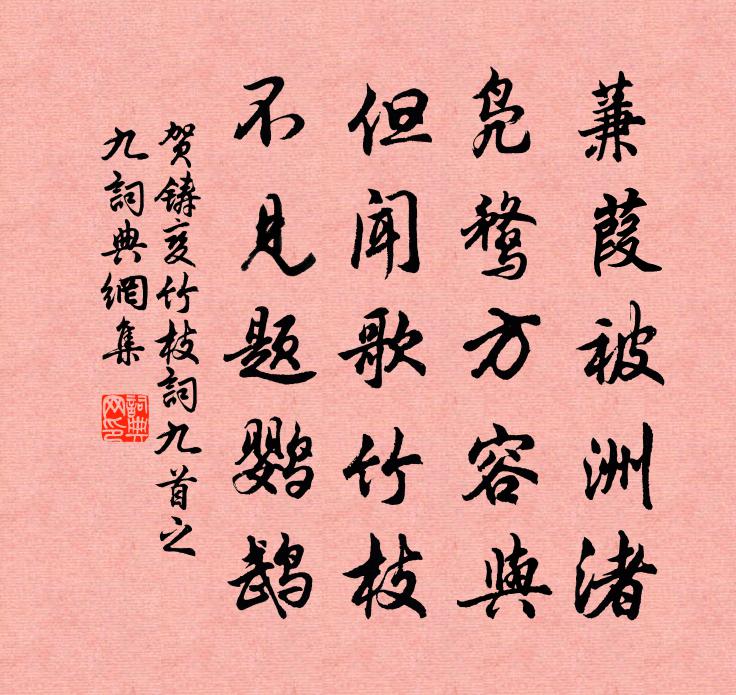 蒹葭被洲渚
凫鹜方容與
但闻歌竹枝
不见题鹦鹉
贺铸变竹枝詞九首之
九詞典網集
詞典
网印